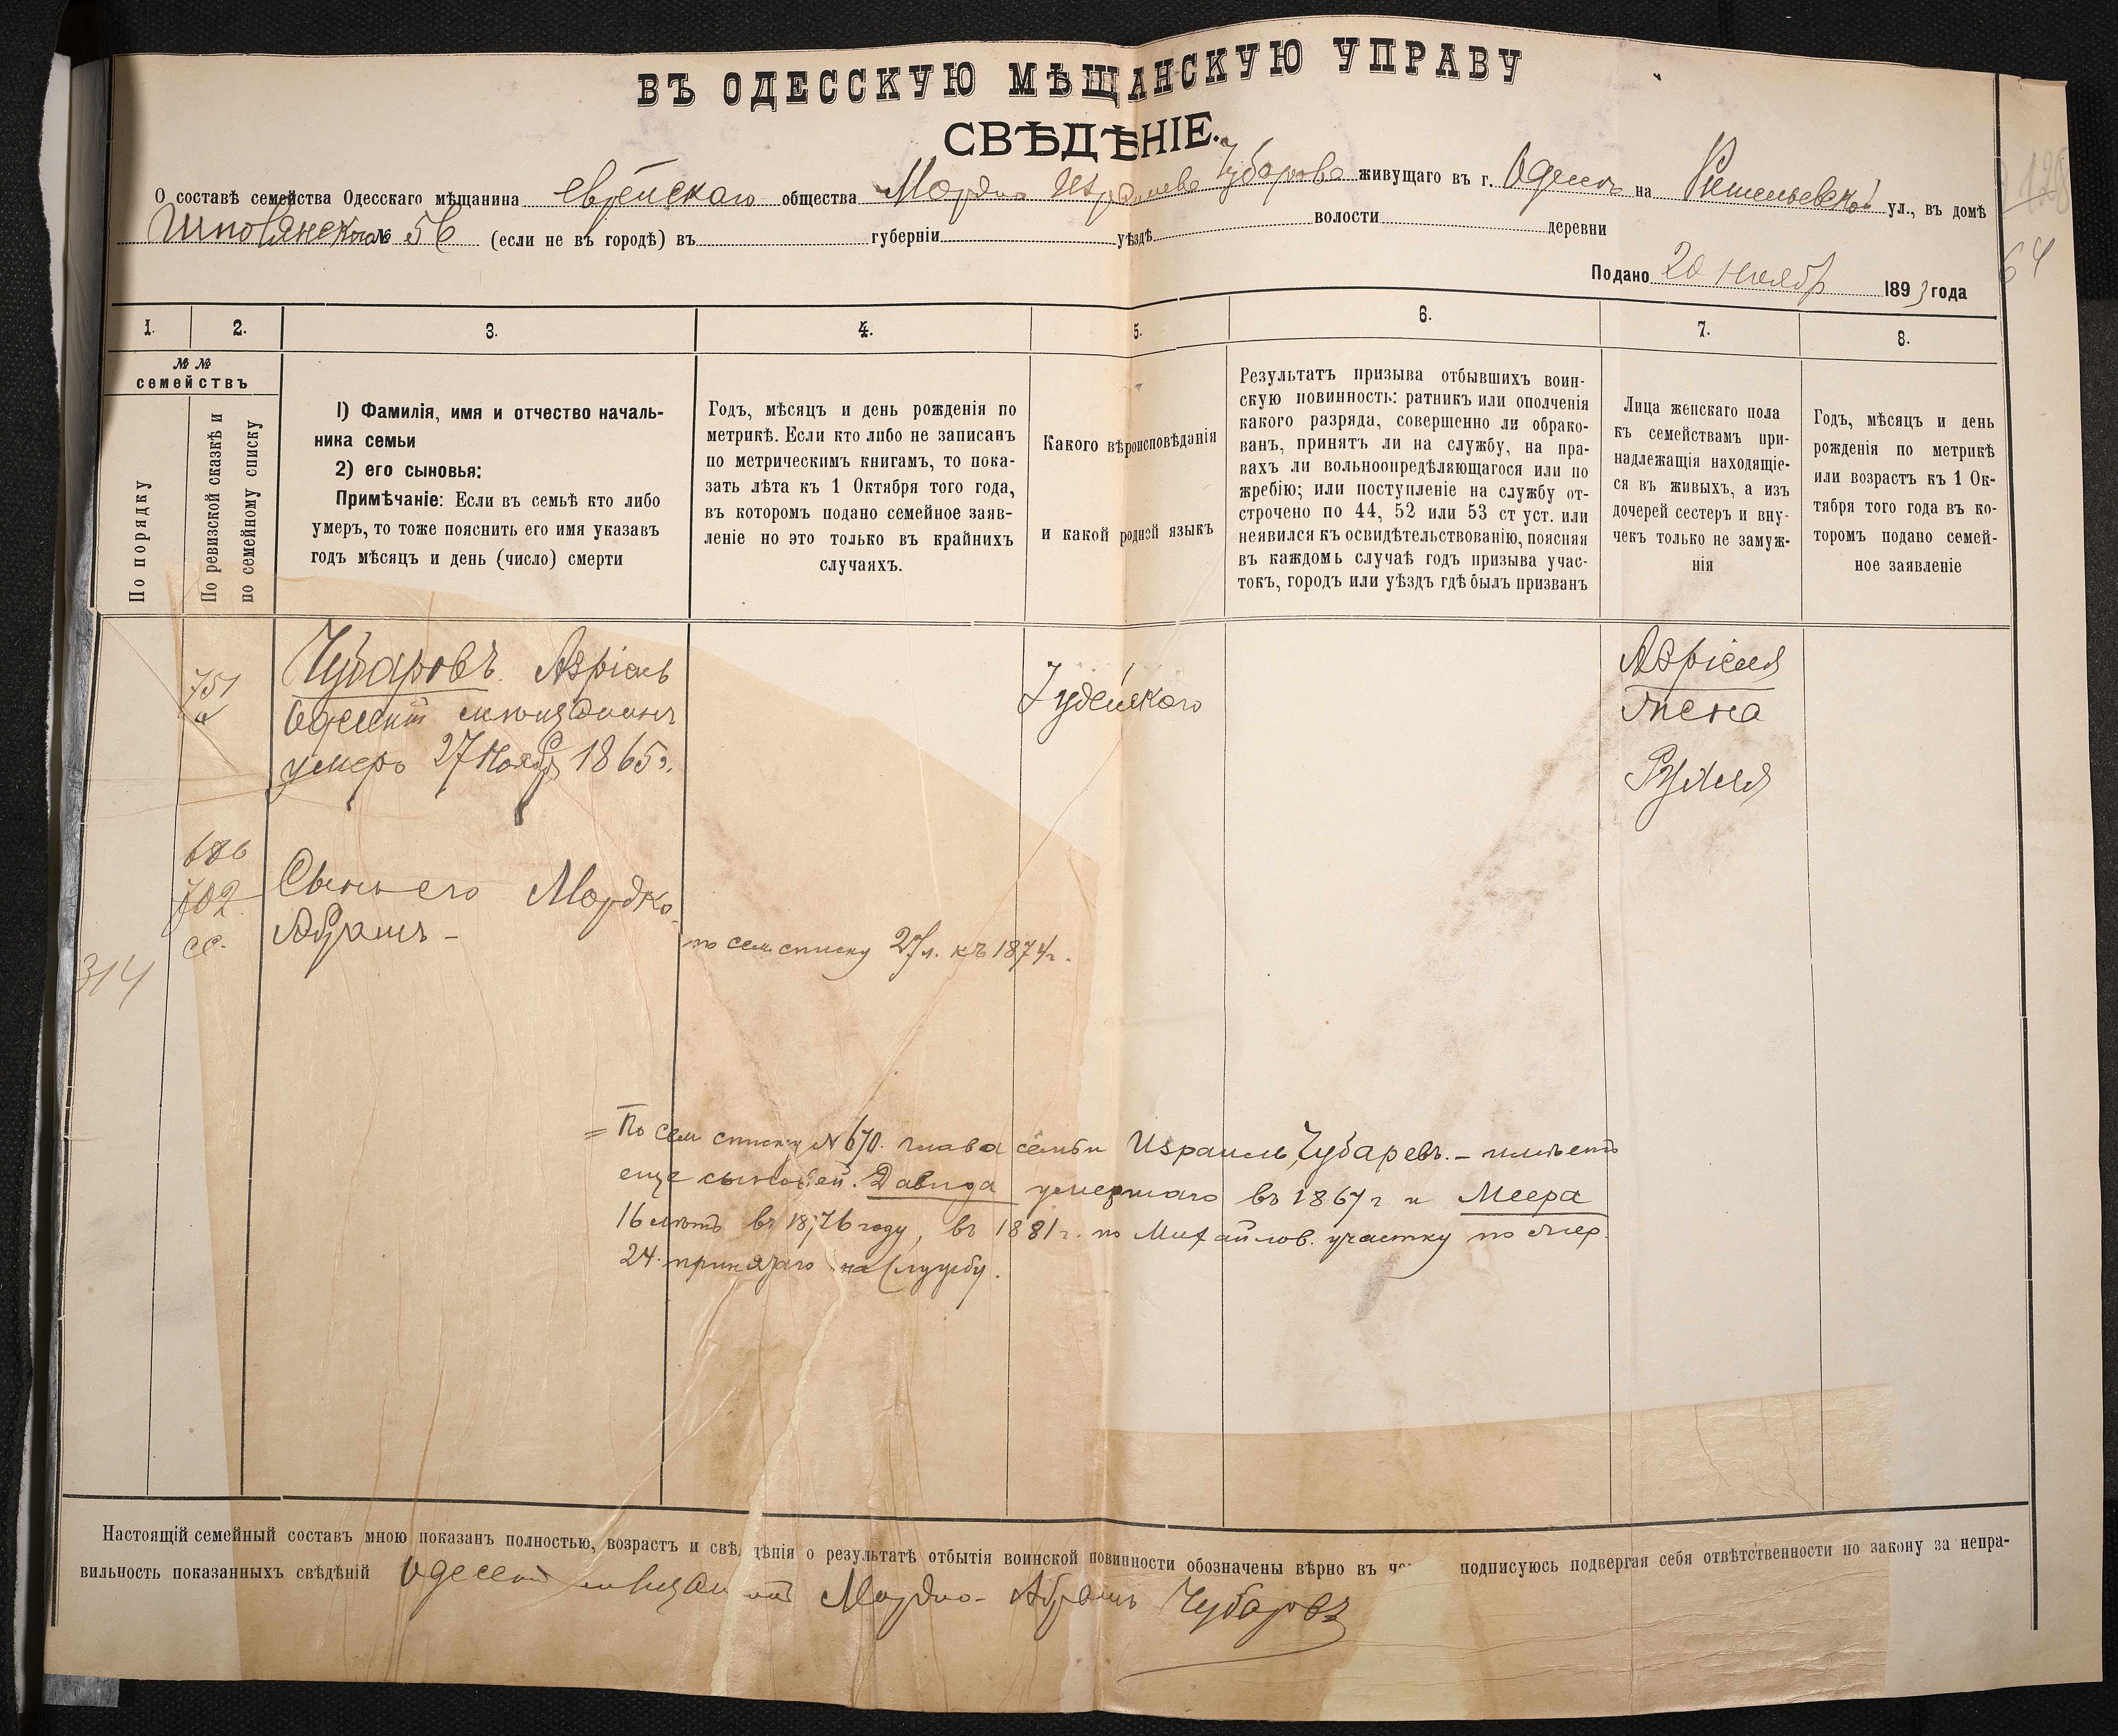 ВЪ ОДЕССКУЮ МѢЩАНСКУЮ УПРАВУ
СВѢДѢНІЕ.
О составѣ семейства Одесскаго мѣщанина еврейскаго общества Мордко Израилева Чубарова живущаго въ г. Одессѣ на Ришельевской ул., въ домѣ
Шполянскаго № 56 (если не въ городѣ) въ губерніи уѣздѣ волости деревни
Подано 20 Ноября 1893 года
128
64
1. 2. 3. 4. 5. 6. 7. 8.
№ №
семействъ
По порядку
По ревизской сказкѣ и
по семейному списку
1) Фамилія, имя и отчество началь-
ника семьи
2) его сыновья:
Примѣчаніе: Если въ семьѣ кто либо
умеръ, то тоже пояснить его имя указавъ
годъ мѣсяцъ и день (число) смерти
Годъ, мѣсяцъ и день рожденія по
метрикѣ. Если кто либо не записанъ
по метрическимъ книгамъ, то пока-
зать лѣта къ 1 Октября того года,
въ которомъ подано семейное заяв-
леніе но это только въ крайнихъ
случаяхъ.
Какого вѣроисповѣданія
и какой родной языкъ
Результатъ призыва отбывшихъ воин-
скую повинность: ратникъ или ополченія
какого разряда, совершенно ли обрако-
ванъ, принятъ ли на службу, на пра-
вахъ ли вольноопредѣляющагося или по
жребію; или поступленіе на службу от-
строчено по 44, 52 или 53 ст уст. или
неявился къ освидѣтельствованію, поясняя
въ каждомъ случаѣ годъ призыва учас-
токъ, городъ или уѣздъ гдѣ былъ призванъ
Лица женскаго пола
къ семействамъ при-
надлежащія находящіе-
ся въ живыхъ, а изъ
дочерей сестеръ и вну-
чекъ только не замуж-
нія
Годъ, мѣсяцъ и день
рожденія по метрикѣ
или возрастъ къ 1 Ок-
тября того года въ ко-
торомъ подано семей-
ное заявленіе
751
Чубаровъ Азріель
Одесскій мѣщанинъ
умеръ 27 Ноября 1865 г.
Іудейскаго
Азріеля
жена
Рухля
686
702
сс.
314
Сынъ его Мордко-
Абрамъ -
по сем списку 27 л. къ 1874 г.
= По сем списку № 670. глава семьи Израиль Чубаревъ. - имѣетъ
еще сыновей. Давида умершаго въ 1867 г и Меера
16 лѣтъ въ 1876 году, въ 1881 г. по Михайлов. участку по жер.
24 принятаго на службу.
Настоящій семейный составъ мною показанъ полностью, возрастъ и свѣдѣнія о результатѣ отбытія воинской повинности обозначены вѣрно въ че подписуюсь подвергая себя отвѣтственности по закону за непра-
вильность показанныхъ свѣдѣній Одесскій мѣщанинъ Мордко-Абрамъ Чубаровъ